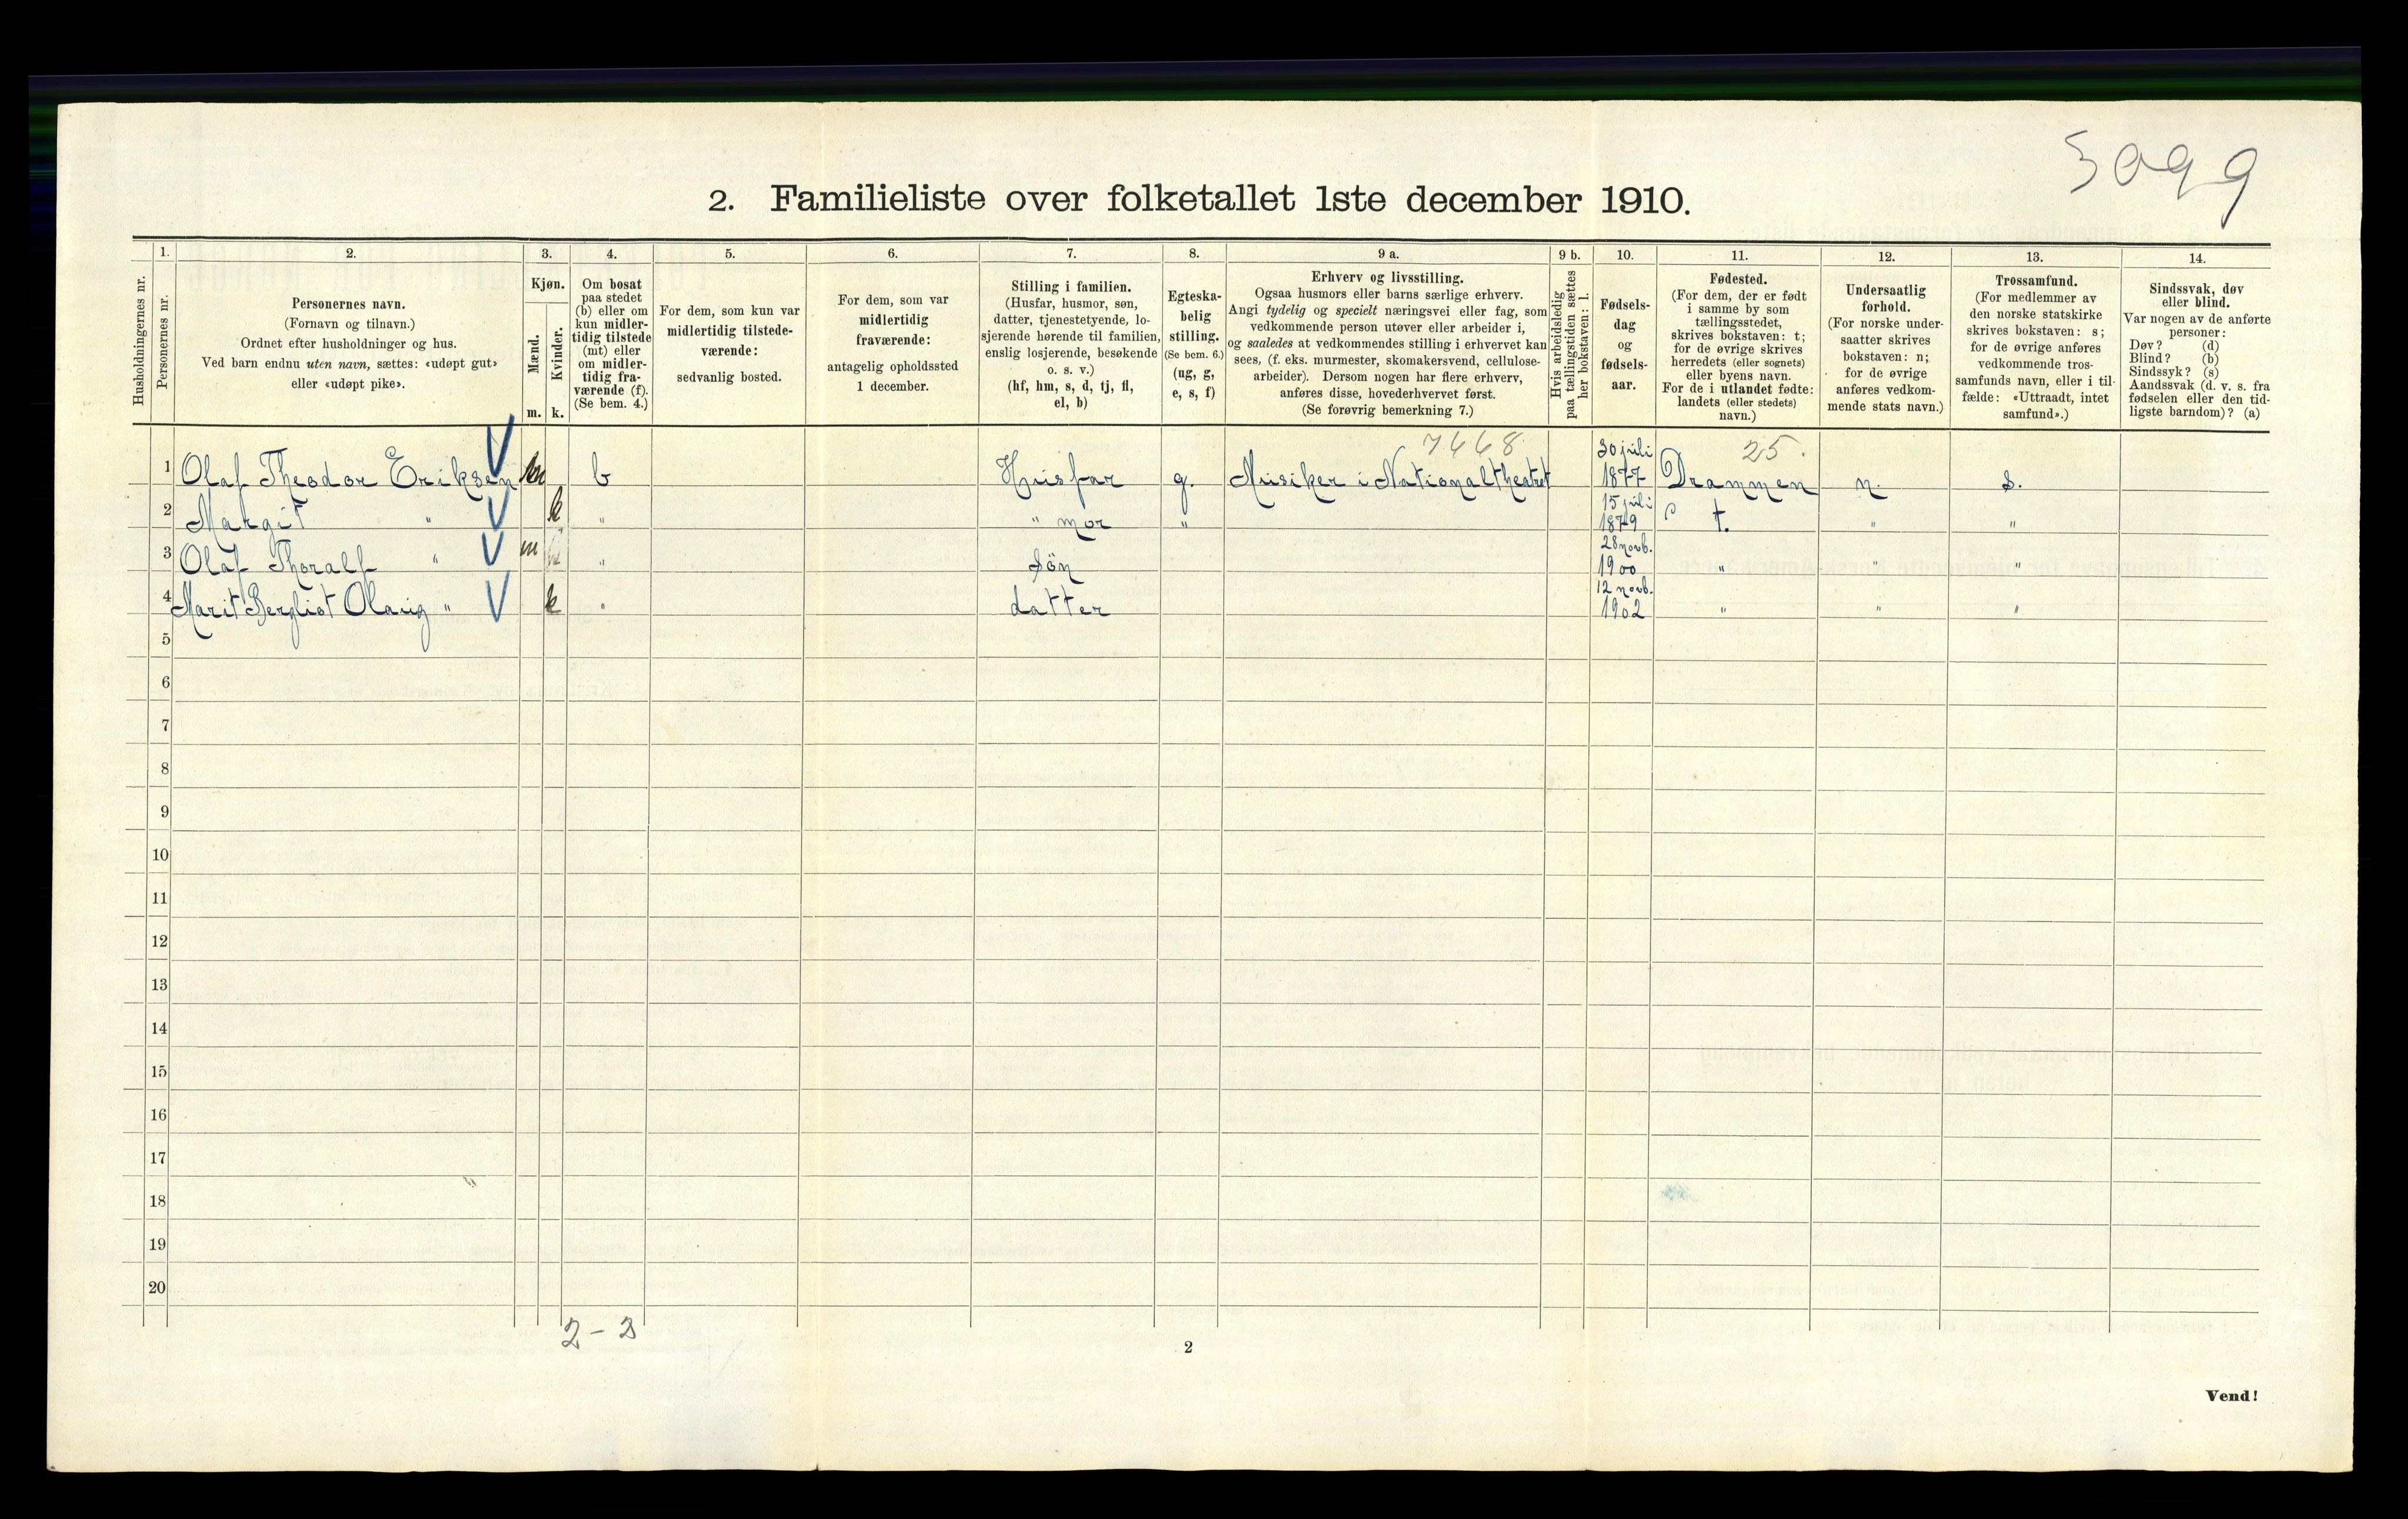 3099
2. Familieliste over folketallet 1ste december 1910.
1. 2. 3. 4. 5. 6. 7. 8. 9 a. 9 b. 10. 11. 12. 13. 14.
Husholdningernes nr.
Personernes nr.
Personernes navn.
(Fornavn og tilnavn.)
Ordnet efter husholdninger og hus.
Ved barn endnu uten navn, sættes: «udøpt gut»
eller «udøpt pike».
Kjøn.
Mænd.
Kvinder.
m. k.
Om bosat
paa stedet
(b) eller om
kun midler-
tidig tilstede
(mt) eller
om midler-
tidig fra-
værende (f).
(Se bem. 4.)
For dem, som kun var
midlertidig tilstede-
værende:
sedvanlig bosted.
For dem, som var
midlertidig
fraværende:
antagelig opholdssted
1 december.
Stilling i familien.
(Husfar, husmor, søn,
datter, tjenestetyende, lo-
sjerende hørende til familien,
enslig losjerende, besøkende
o. s. v.)
(hf, hm, s, d, tj, fl,
el, b)
Egteska-
belig
stilling.
(Se bem. 6.)
(ug, g,
e, s, f)
Erhverv og livsstilling.
Ogsaa husmors eller barns særlige erhverv.
Angi tydelig og specielt næringsvei eller fag, som
vedkommende person utøver eller arbeider i,
og saaledes at vedkommendes stilling i erhvervet kan
sees, (f. eks. murmester, skomakersvend, cellulose-
arbeider). Dersom nogen har flere erhverv,
anføres disse, hovederhvervet først.
(Se forøvrig bemerkning 7.)
Hvis arbeidsledig
paa tællingstiden sættes
her bokstaven: l.
Fødsels-
dag
og
fødsels-
aar.
Fødested.
(For dem, der er født
i samme by som
tællingsstedet,
skrives bokstaven: t;
for de øvrige skrives
herredets (eller sognets)
eller byens navn.
For de i utlandet fødte:
landets (eller stedets)
navn.)
Undersaatlig
forhold.
(For norske under-
saatter skrives
bokstaven: n;
for de øvrige
anføres vedkom-
mende stats navn.)
Trossamfund.
(For medlemmer av
den norske statskirke
skrives bokstaven: s;
for de øvrige anføres
vedkommende tros-
samfunds navn, eller i til-
fælde: «Uttraadt, intet
samfund».)
Sindssvak, døv
eller blind.
Var nogen av de anførte
personer:
Døv? (d)
Blind? (b)
Sindssyk? (s)
Aandssvak (d. v. s. fra
fødselen eller den tid-
ligste barndom)? (a)
7468 25.
1 Olaf Theodor Eriksen m b Husfar g. Musiker i Nationaltheatret 30 juli 1877 Drammen n. s.
2 Margit " k " " mor " 15 juli 1879 t. " "
3 Olaf Thoralf " m " Søn 28 novb. 1900 " " "
4 Marit Bergliot Olaug " k " datter 12 novb. 1902 " " "
5
6
7
8
9
10
11
12
13
14
15
16
17
18
19
20
2 - 2
2
Vend!